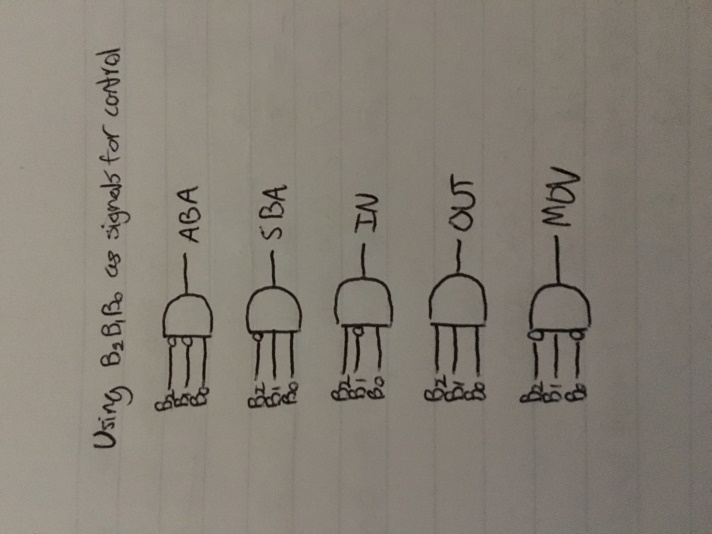 Using B₂B₁B₀ as signals for control
B₂
B₁
B₀
ABA
B₂
B₁
B₀
SBA
B₂
B₁
B₀
IN
B₂
B₁
B₀
OUT
B₂
B₁
B₀
MOV